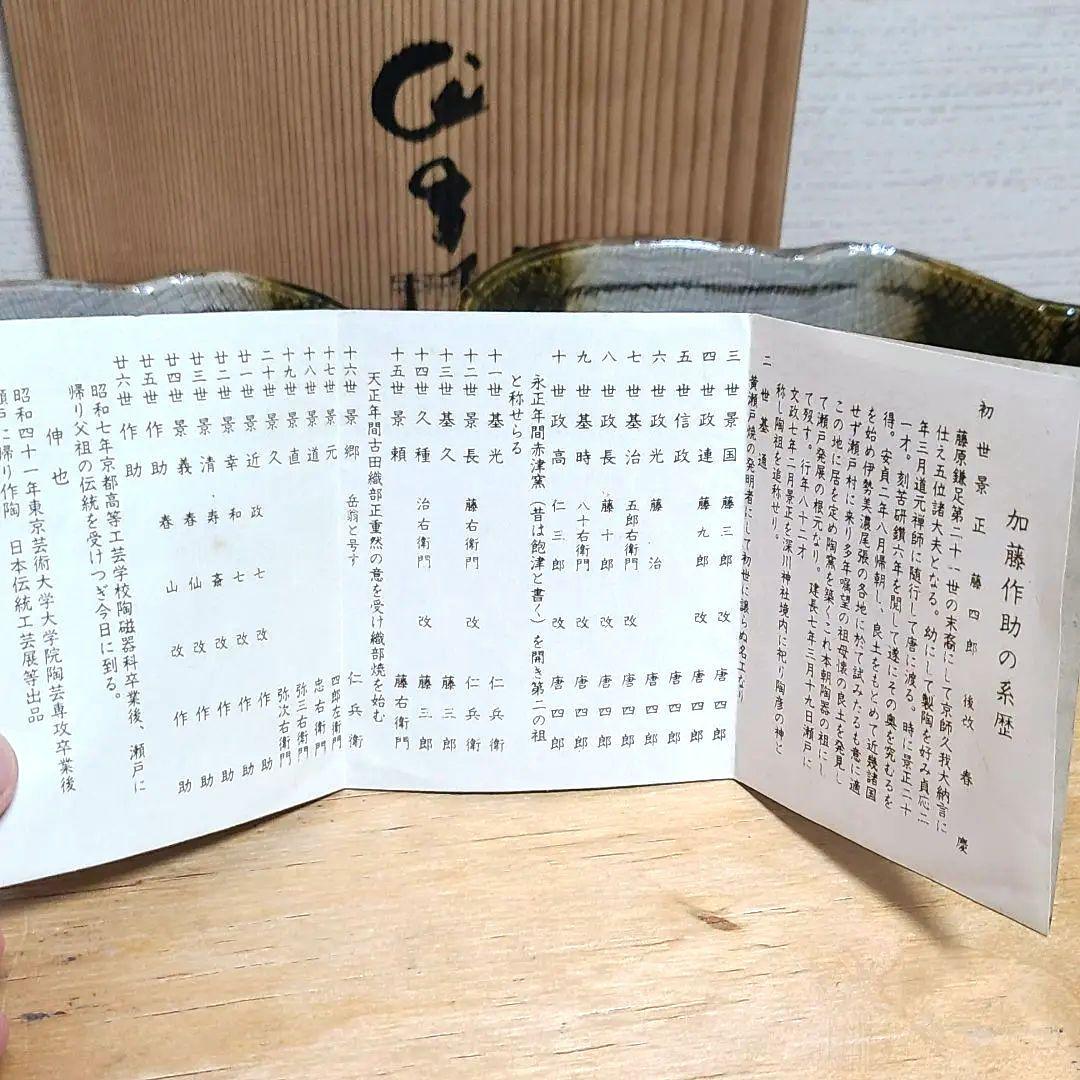 加藤作助の系歴
初世景正 藤四郎 後改 春慶
藤原鎌足第二十一世の末裔にして京師久我大納言に
仕え五位諸大夫となる。幼にして製陶を好み貞応二
年三月道元禅師に随行して唐に渡る。時に景正二十
一才。刻苦研鑽六年を閲して遂にその奥を究むるを
得。安貞二年八月帰朝し、良土をもとめて近畿諸国
を始め伊勢美濃尾張の各地に於て試みたるも意に適
せず瀬戸村に来り多年嘱望の祖母懐の良土を発見し
この地に居を定め陶窯を築くこれ本朝陶器の祖にし
て瀬戸発展の根元なり。 建長七年三月十九日瀬戸に
て歿す。行年八十二才
文政七年二月景正を深川神社境内に祀り陶彦の神と
称し陶祖を追称せり。
二世基通
黄瀬戸焼の発明者にして初世に譲らぬ名工なり
三世景国 藤三郎 改 唐四郎
四世政連 藤九郎 改 唐四郎
五世信政 唐四郎
六世政光 藤治 唐四郎
七世基治 五郎右衛門 改 唐四郎
八世基時 藤十郎 改 唐四郎
九世政時 八十右衛門 唐四郎
十世政高 仁三郎 改 唐四郎
永正年間赤津窯(昔は飽津と書く)を開き第二の祖
と称せらる
十一世基光 仁兵衛
十二世景長 藤右衛門 改 仁兵衛
十三世基久 藤三郎
十四世久種 治右衛門 改 藤三郎
十五世景頼 藤右衛門
天正年間古田織部正重然の意を受け織部焼を始む
十六世景郷 岳翁と号す 仁兵衛
十七世景元 四郎左衛門
十八世景道 忠右衛門
十九世景直 弥三右衛門
二十世景久 弥次右衛門
廿一世景近 政七 改 作助
廿二世景幸 和七 改 作助
廿三世景清 寿斎 改 作助
廿四世景義 春仙 改 作助
廿五世作助 春山 改 作助
廿六世作助
昭和七年京都高等工芸学校陶磁器科卒業後、瀬戸に
帰り父祖の伝統を受けつぎ今日に到る。
伸也
昭和四十一年東京芸術大学大学院陶芸専攻卒業後
瀬戸に帰り作陶 日本伝統工芸展等出品